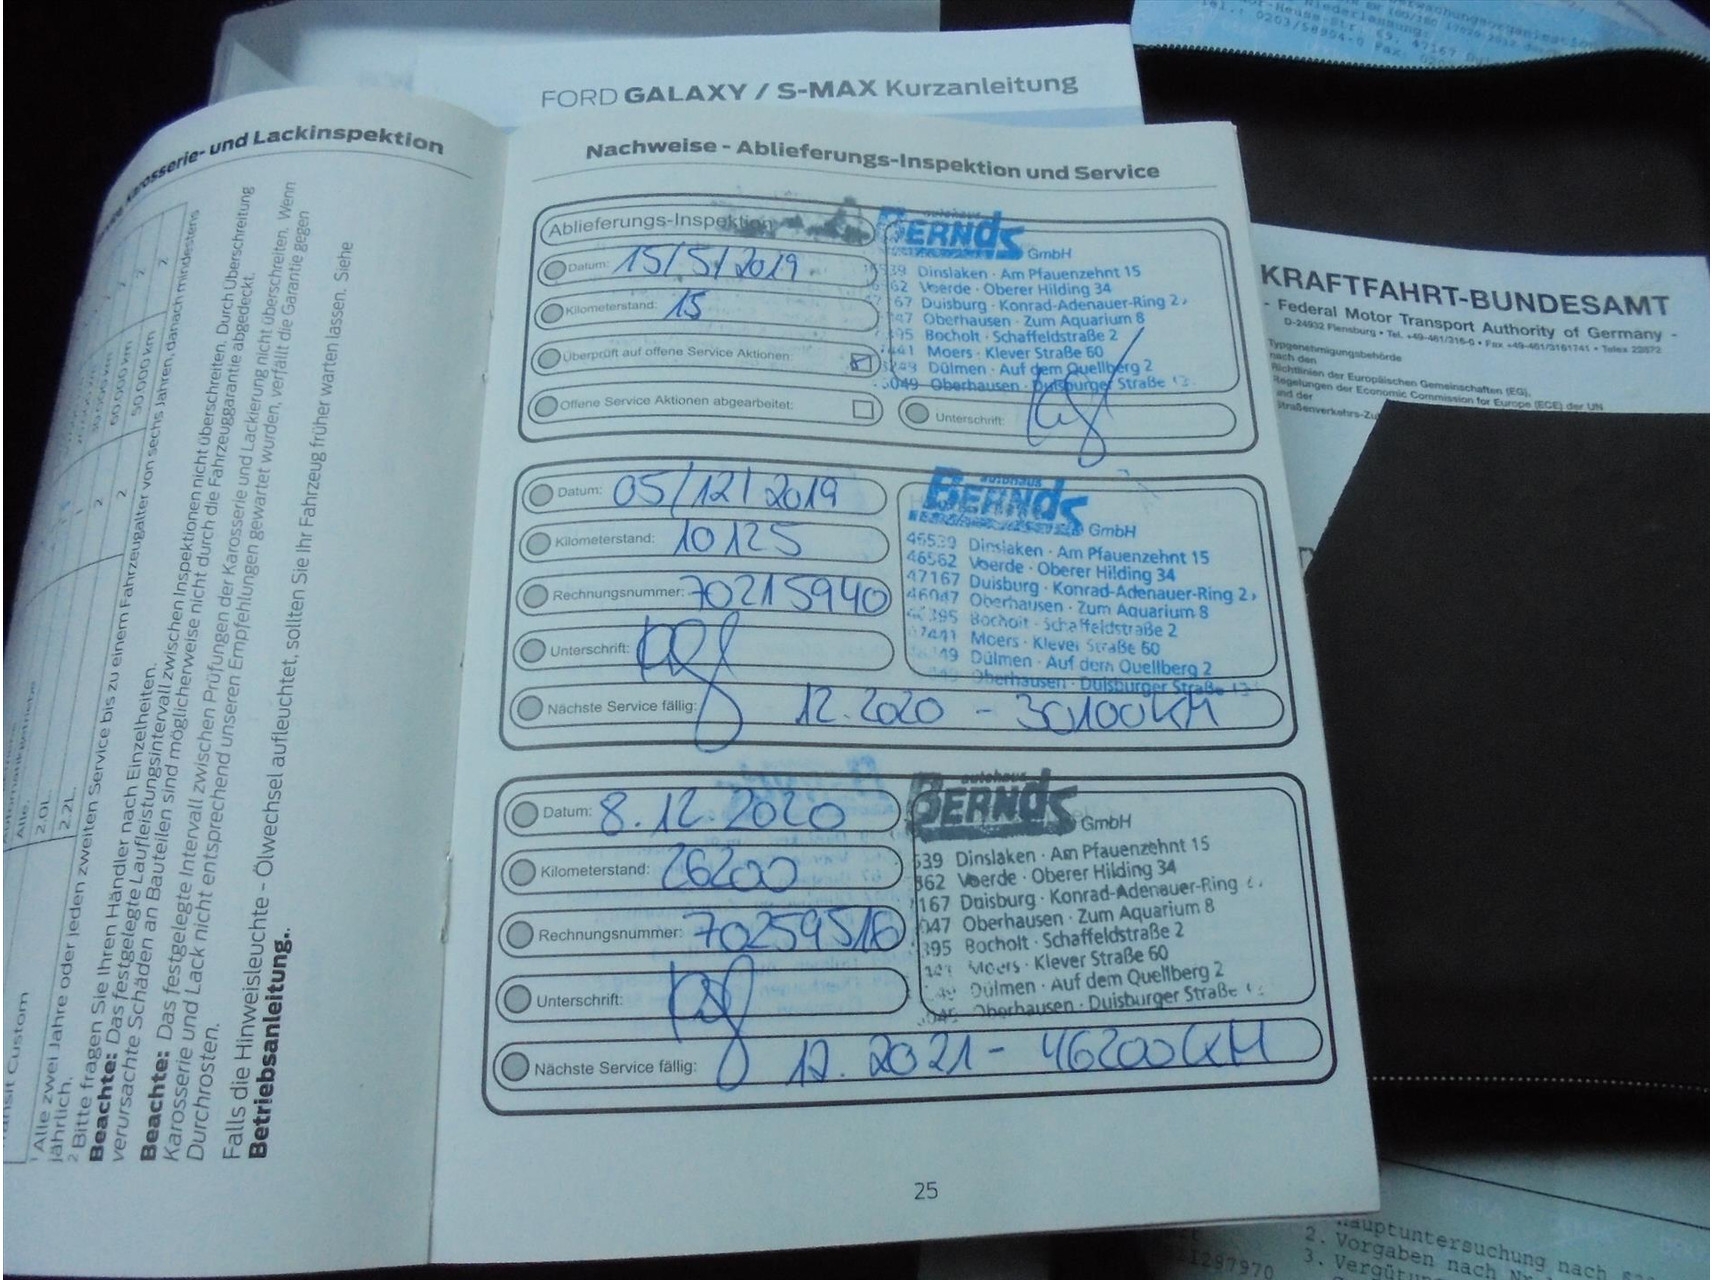 FORD GALAXY / S-MAX Kurzanleitung
Karosserie- und Lackinspektion
Alle.
2.0L.
2.2L.
60.000 km
50.000 km
Alle zwei Jahre oder jeden zweiten Service bis zu einem Fahrzeugalter von sechs Jahren, danach mindestens
jährlich.
2 Bitte fragen Sie Ihren Händler nach Einzelheiten.
Beachte: Das festgelegte Laufleistungsintervall zwischen Inspektionen nicht überschreiten. Durch Überschreitung
verursachte Schäden an Bauteilen sind möglicherweise nicht durch die Fahrzeuggarantie abgedeckt.
Beachte: Das festgelegte Intervall zwischen Prüfungen der Karosserie und Lackierung nicht überschreiten. Wenn
Karosserie und Lack nicht entsprechend unseren Empfehlungen gewartet wurden, verfällt die Garantie gegen
Durchrosten.
Falls die Hinweisleuchte - Ölwechsel aufleuchtet, sollten Sie Ihr Fahrzeug früher warten lassen. Siehe
Betriebsanleitung..
Nachweise - Ablieferungs-Inspektion und Service
Ablieferungs-Inspektion
Datum: 15/5/2019
Kilometerstand: 15
Überprüft auf offene Service Aktionen:
Offene Service Aktionen abgearbeitet:
autohaus
BERNDS GmbH
Dinslaken · Am Pfauenzehnt 15
Voerde · Oberer Hilding 34
Duisburg · Konrad-Adenauer-Ring 2
Oberhausen · Zum Aquarium 8
Bocholt · Schaffeldstraße 2
Moers · Klever Straße 60
Dülmen · Auf dem Quellberg 2
Oberhausen · Duisburger Straße
Unterschrift:
Datum: 05/12/2019
Kilometerstand: 10125
Rechnungsnummer: 70215940
Unterschrift:
Nächste Service fällig: 12.2020 - 30100KM
autohaus
BERNDS GmbH
46539 Dinslaken · Am Pfauenzehnt 15
46562 Voerde · Oberer Hilding 34
47167 Duisburg · Konrad-Adenauer-Ring 2
46047 Oberhausen · Zum Aquarium 8
Bocholt · Schaffeldstraße 2
Moers · Klever Straße 60
Dülmen · Auf dem Quellberg 2
Oberhausen · Duisburger Straße
Datum: 8.12.2020
Kilometerstand: 26200
Rechnungsnummer: 70259516
Unterschrift:
Nächste Service fällig: 12.2021 - 46200KM
autohaus
BERNDS GmbH
Dinslaken · Am Pfauenzehnt 15
Voerde · Oberer Hilding 34
Duisburg · Konrad-Adenauer-Ring
Oberhausen · Zum Aquarium 8
Bocholt · Schaffeldstraße 2
Moers · Klever Straße 60
Dülmen · Auf dem Quellberg 2
Oberhausen · Duisburger Straße
25
KRAFTFAHRT-BUNDESAMT
- Federal Motor Transport Authority of Germany -
D-24932 Flensburg
Typgenehmigungsbehörde
nach den
Richtlinien der Europäischen Gemeinschaften (EG),
Regelungen der Economic Commission for Europe (ECE) der UN
und der
Hauptuntersuchung nach
2. Vorgaben nach
3.